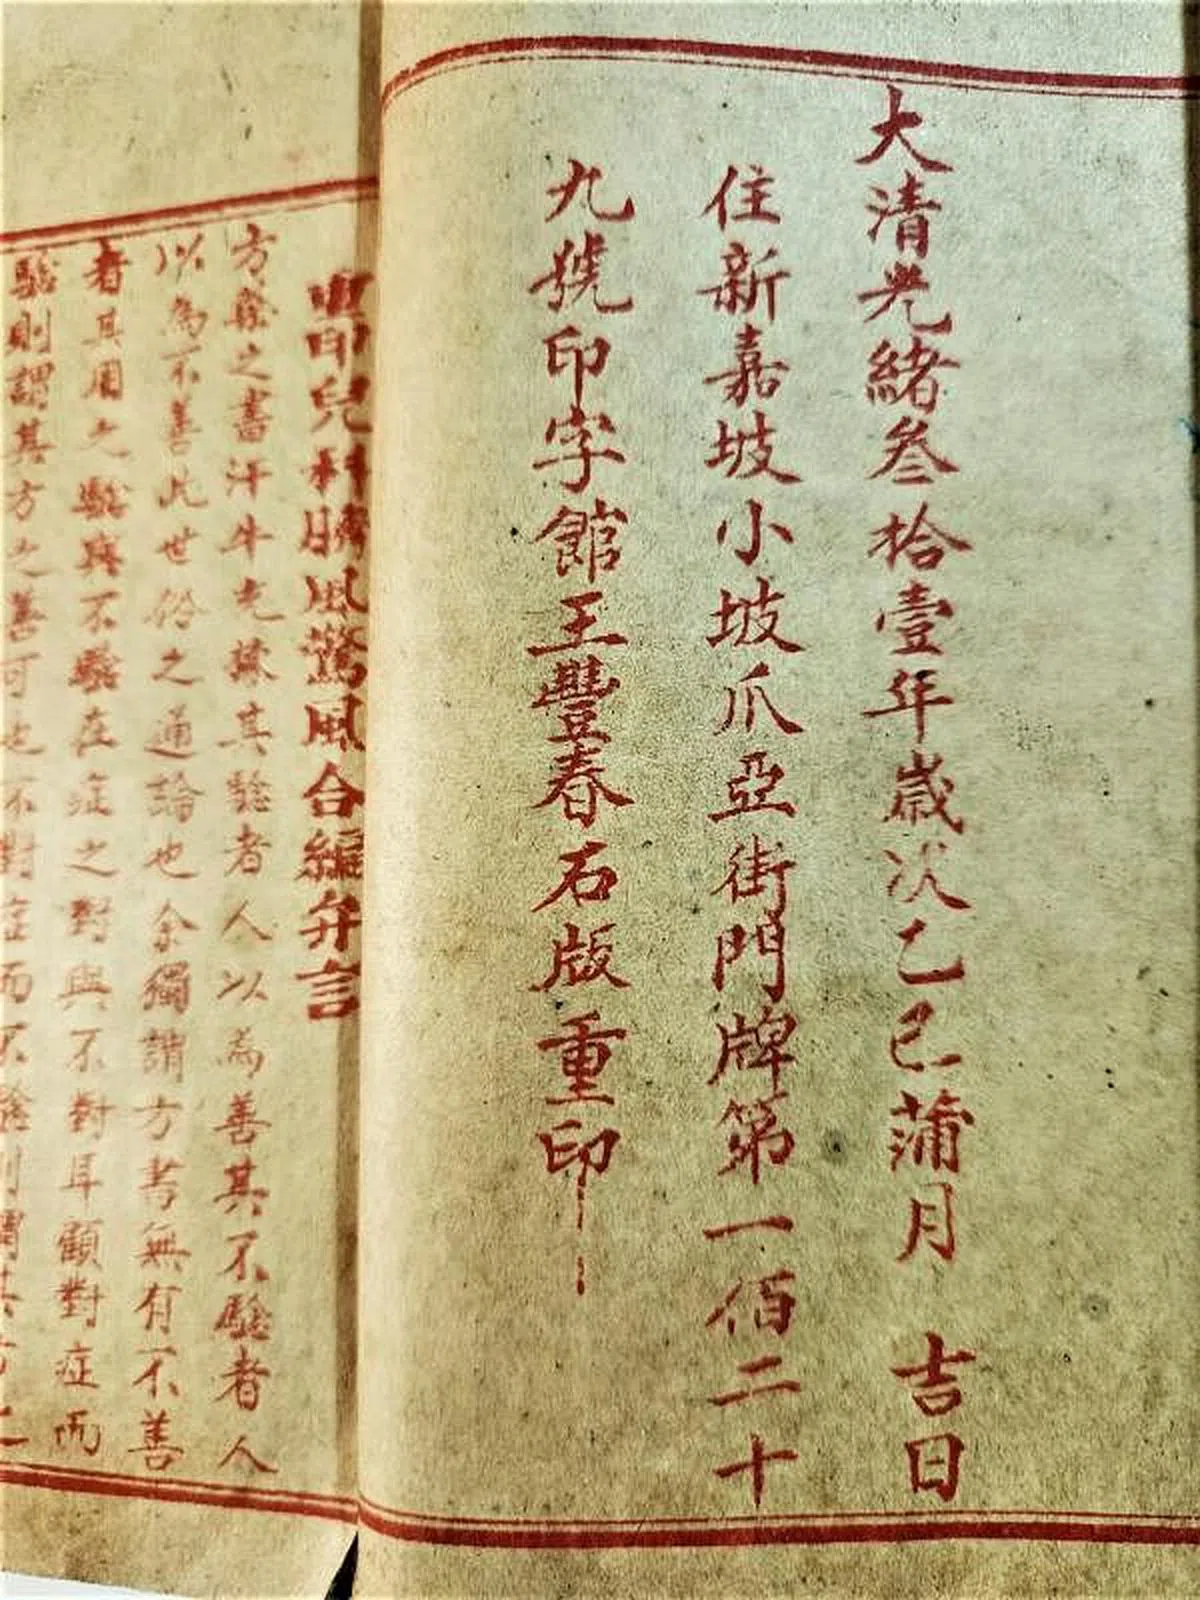 大清光緒叁拾壹年歲次乙巳蒲月 吉日
住新嘉坡小坡爪亞街門牌第一佰二十
九號印字館王豐春石版重印
重印兒科臍風驚風合編弁言
方藥之書汗牛充棟其驗者人以為善其不驗者人
以為不善此世俗之通論也余獨謂方書無有不善
者其用之驗與不驗在症之對與不對耳顧對症而
驗則謂其方之善可也不對症而不驗則謂其方之